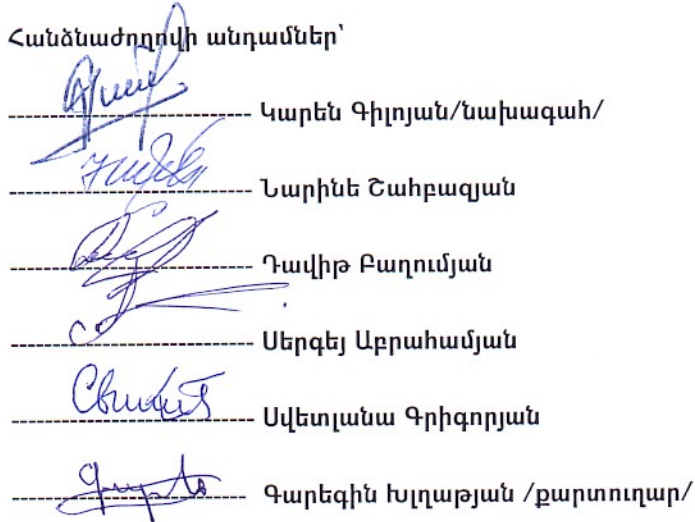 Հանձնաժողովի անդամներ՝
Կարեն Գիլոյան/նախագահ/
Նարինե Շահբազյան
Դավիթ Բաղումյան
Սերգեյ Աբրահամյան
Սվետլանա Գրիգորյան
Գարեգին Խլղաթյան /քարտուղար/